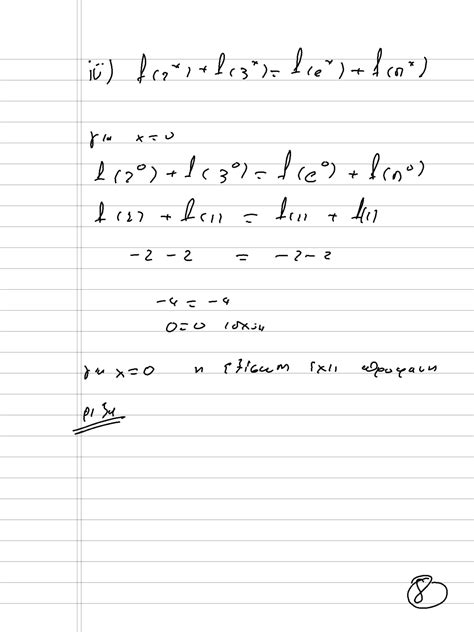 ii) f(2^x) + f(3^x) = f(e^x) + f(π^x)
για x=0
f(2^0) + f(3^0) = f(e^0) + f(π^0)
f(1) + f(1) = f(1) + f(1)
-2 -2 = -2-2
-4 = -4
0=0 ισχύει
για x=0 η εξίσωση έχει προφανή
ρίζα
8